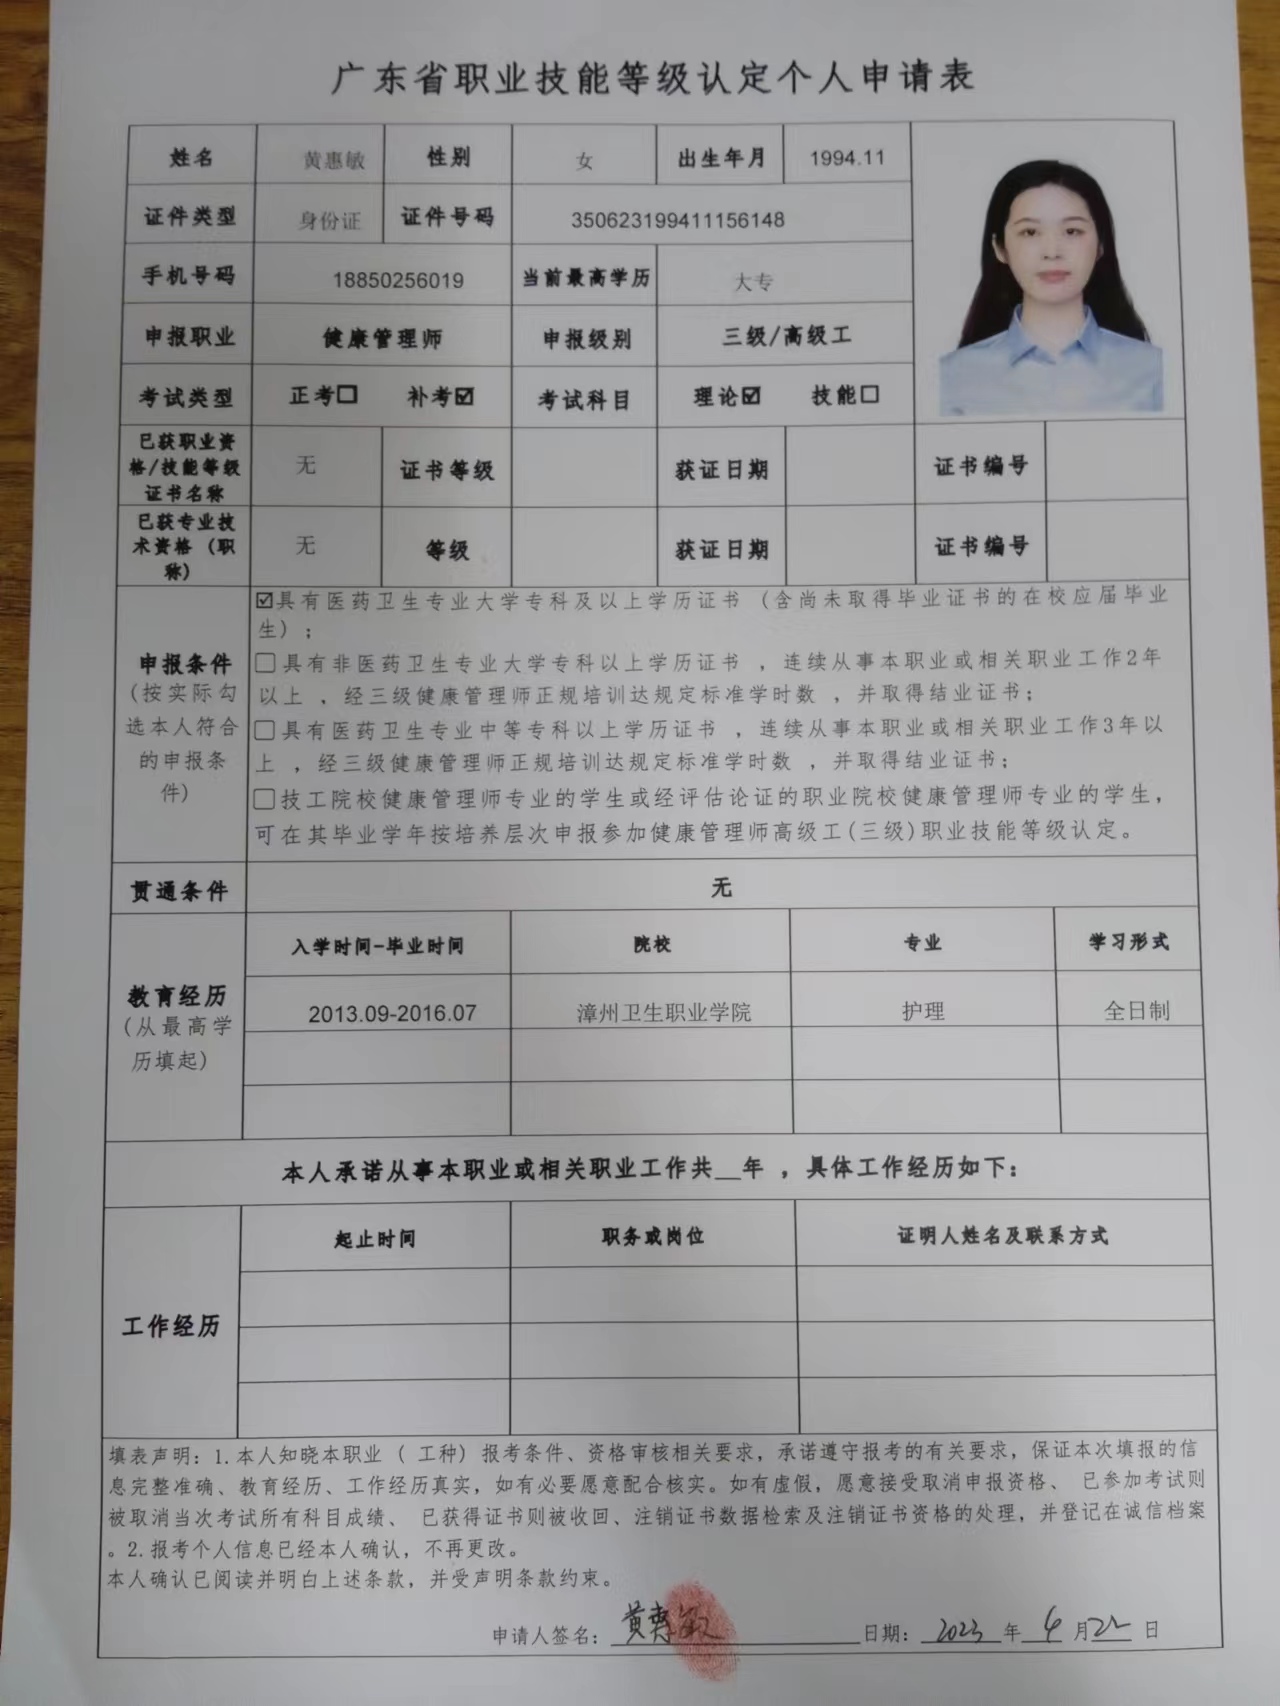 广东省职业技能等级认定个人申请表
姓名 黄惠敏 性别 女 出生年月 1994.11
证件类型 身份证 证件号码 350623199411156148
手机号码 18850256019 当前最高学历 大专
申报职业 健康管理师 申报级别 三级/高级工
考试类型 正考☐ 补考☑ 考试科目 理论☑ 技能☐
已获职业资格/技能等级证书名称 无 证书等级 获证日期 证书编号
已获专业技术资格（职称） 无 等级 获证日期 证书编号
申报条件
(按实际勾选本人符合的申报条件)
☑具有医药卫生专业大学专科及以上学历证书（含尚未取得毕业证书的在校应届毕业
生）；
☐具有非医药卫生专业大学专科以上学历证书，连续从事本职业或相关职业工作2年
以上，经三级健康管理师正规培训达规定标准学时数，并取得结业证书；
☐具有医药卫生专业中等专科以上学历证书，连续从事本职业或相关职业工作3年以
上，经三级健康管理师正规培训达规定标准学时数，并取得结业证书；
☐技工院校健康管理师专业的学生或经评估论证的职业院校健康管理师专业的学生，
可在其毕业学年按培养层次申报参加健康管理师高级工(三级)职业技能等级认定。
贯通条件 无
教育经历
(从最高学历填起)
入学时间-毕业时间 院校 专业 学习形式
2013.09-2016.07 漳州卫生职业学院 护理 全日制
本人承诺从事本职业或相关职业工作共__年，具体工作经历如下：
工作经历
起止时间 职务或岗位 证明人姓名及联系方式
填表声明：1.本人知晓本职业（ 工种）报考条件、资格审核相关要求，承诺遵守报考的有关要求，保证本次填报的信
息完整准确、教育经历、工作经历真实，如有必要愿意配合核实。如有虚假，愿意接受取消申报资格、 已参加考试则
被取消当次考试所有科目成绩、 已获得证书则被收回、注销证书数据检索及注销证书资格的处理，并登记在诚信档案
。2.报考个人信息已经本人确认，不再更改。
本人确认已阅读并明白上述条款，并受声明条款约束。
申请人签名：黄惠敏 日期：2023 年 4 月 22 日